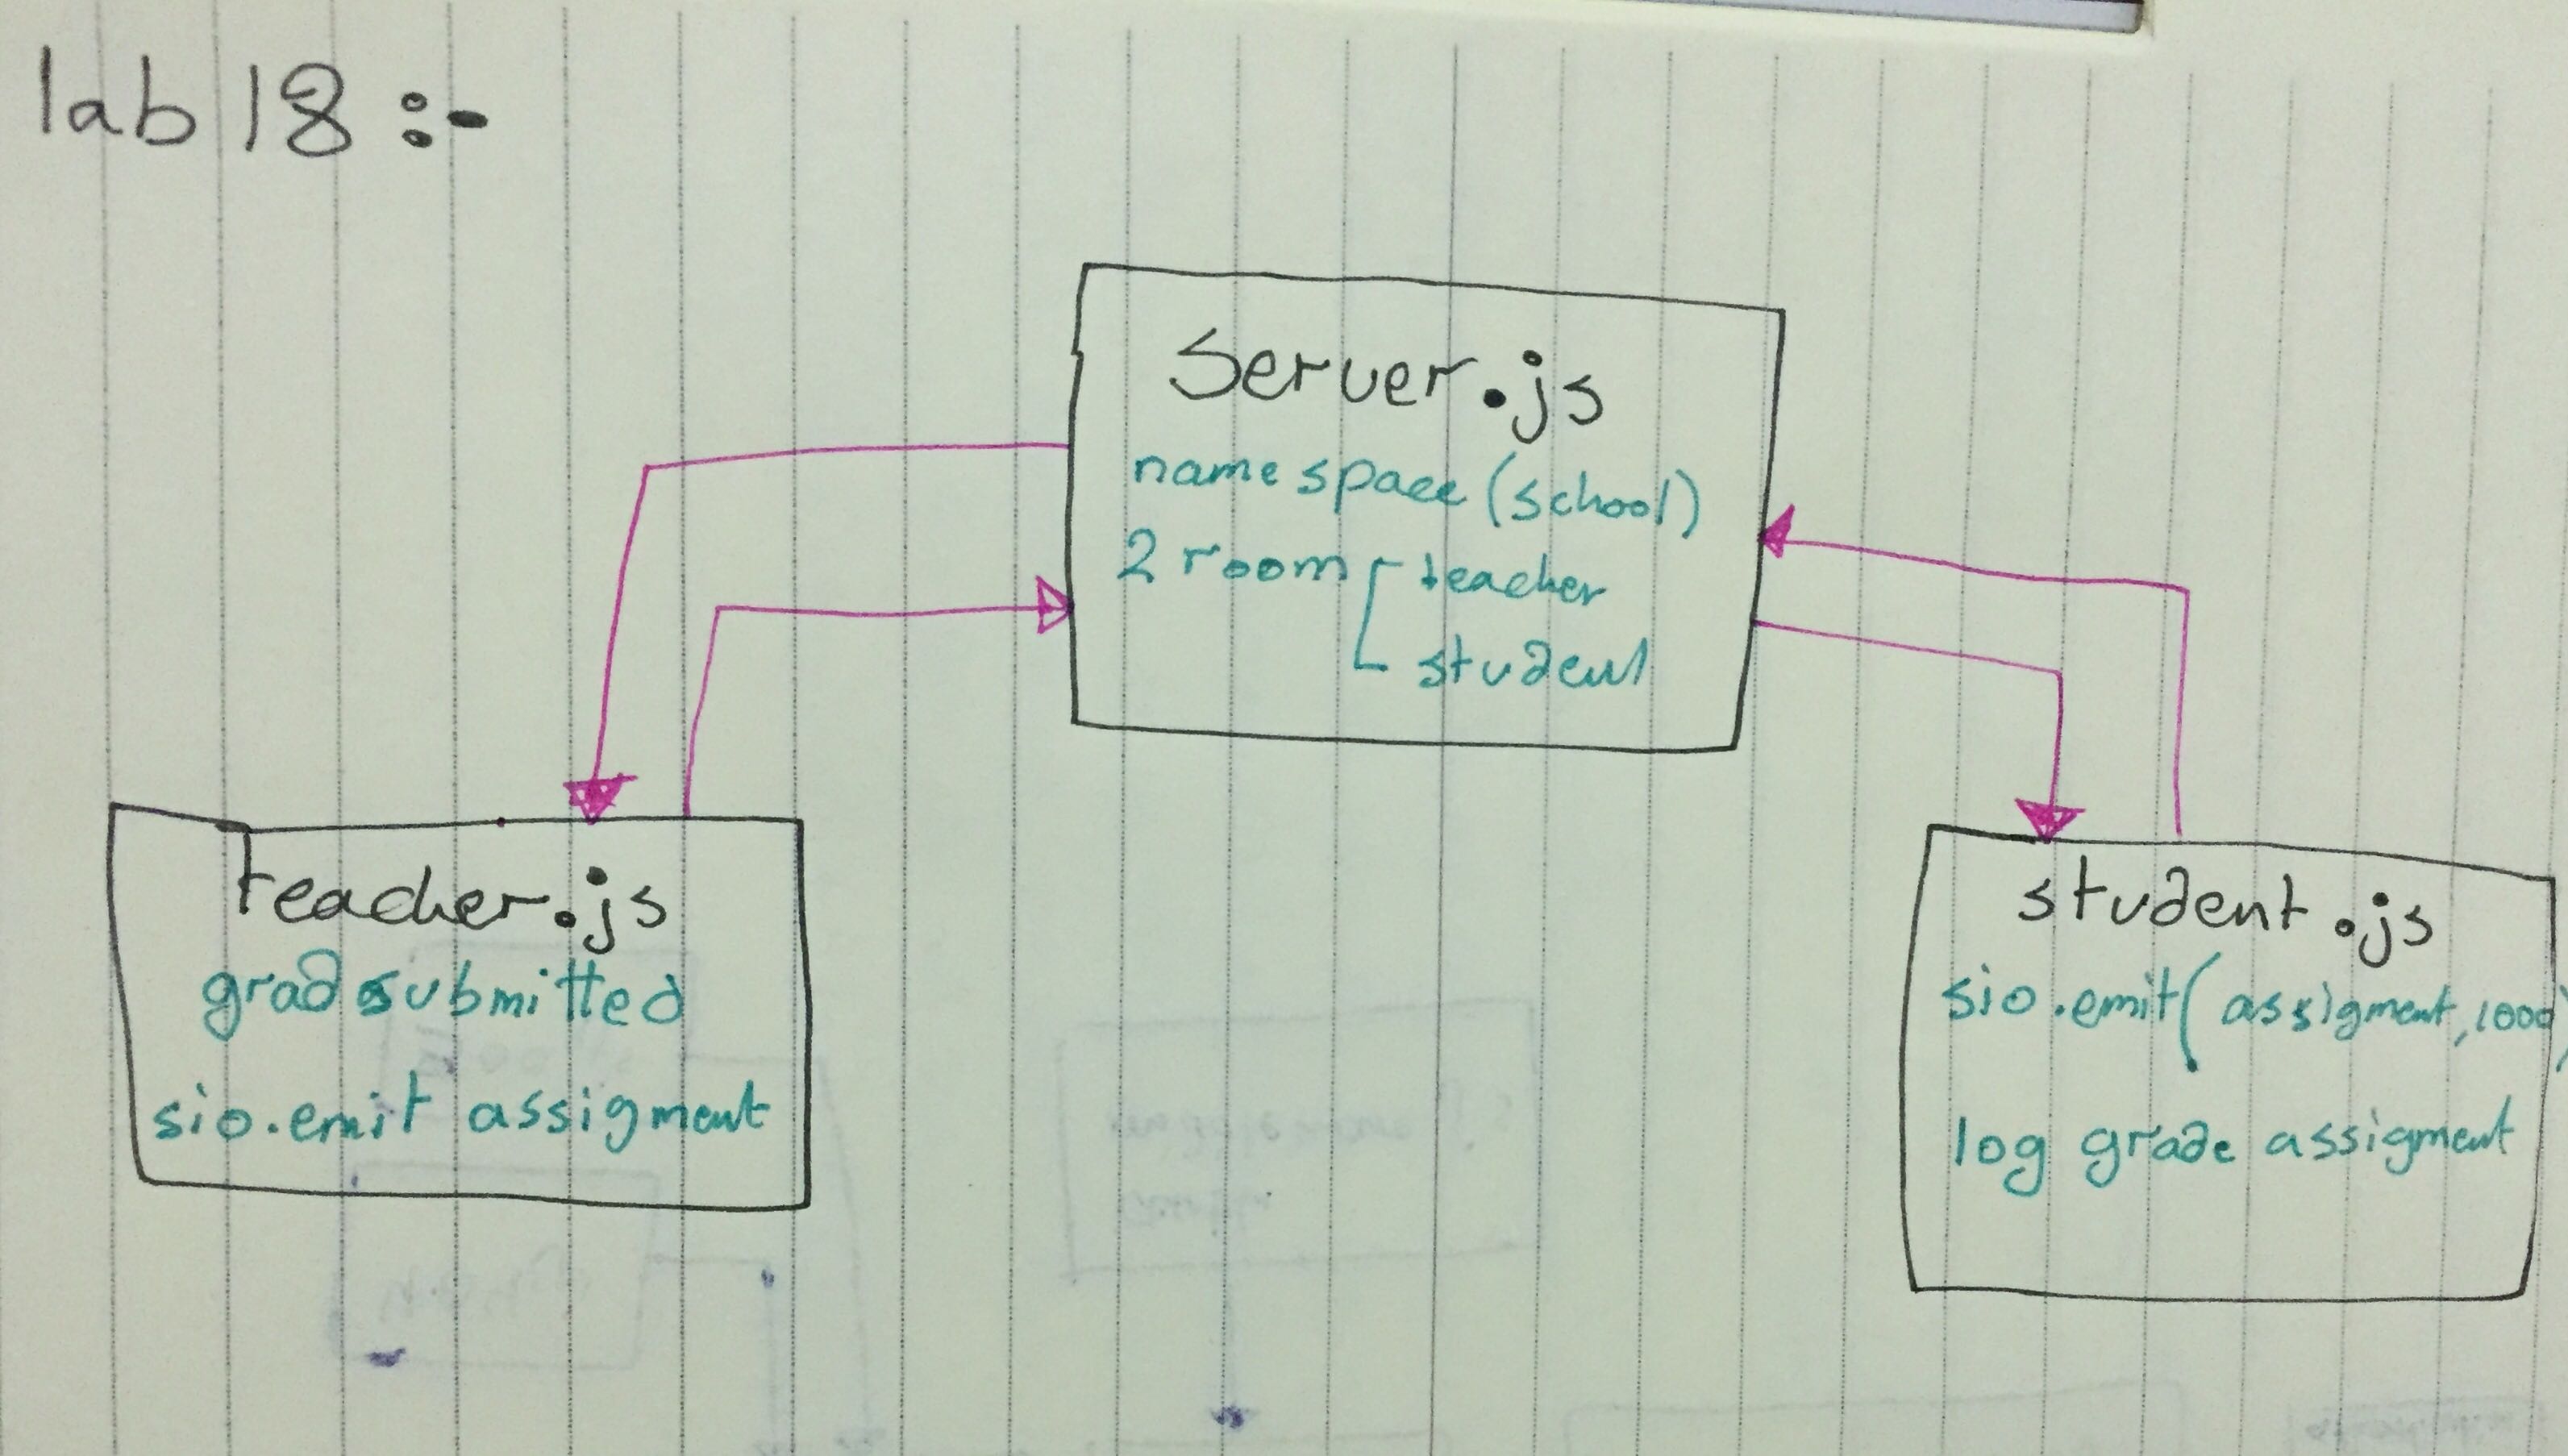 lab 18 :-
Server.js
name space (school)
2 room teacher
student
teacher.js
grad submitted
sio.emit assigment
student.js
sio.emit( assigment, 1000)
log grade assigment